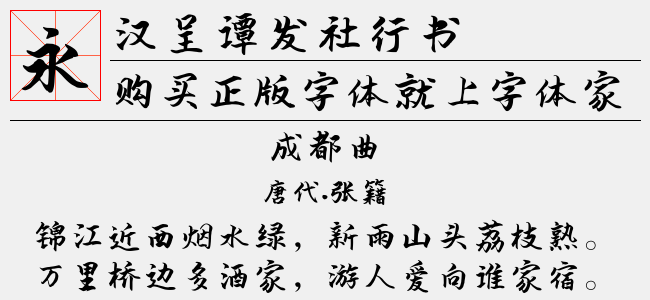 永
汉呈谭发社行书
购买正版字体就上字体家
成都曲
唐代.张籍
锦江近西烟水绿，新雨山头荔枝熟。
万里桥边多酒家，游人爱向谁家宿。